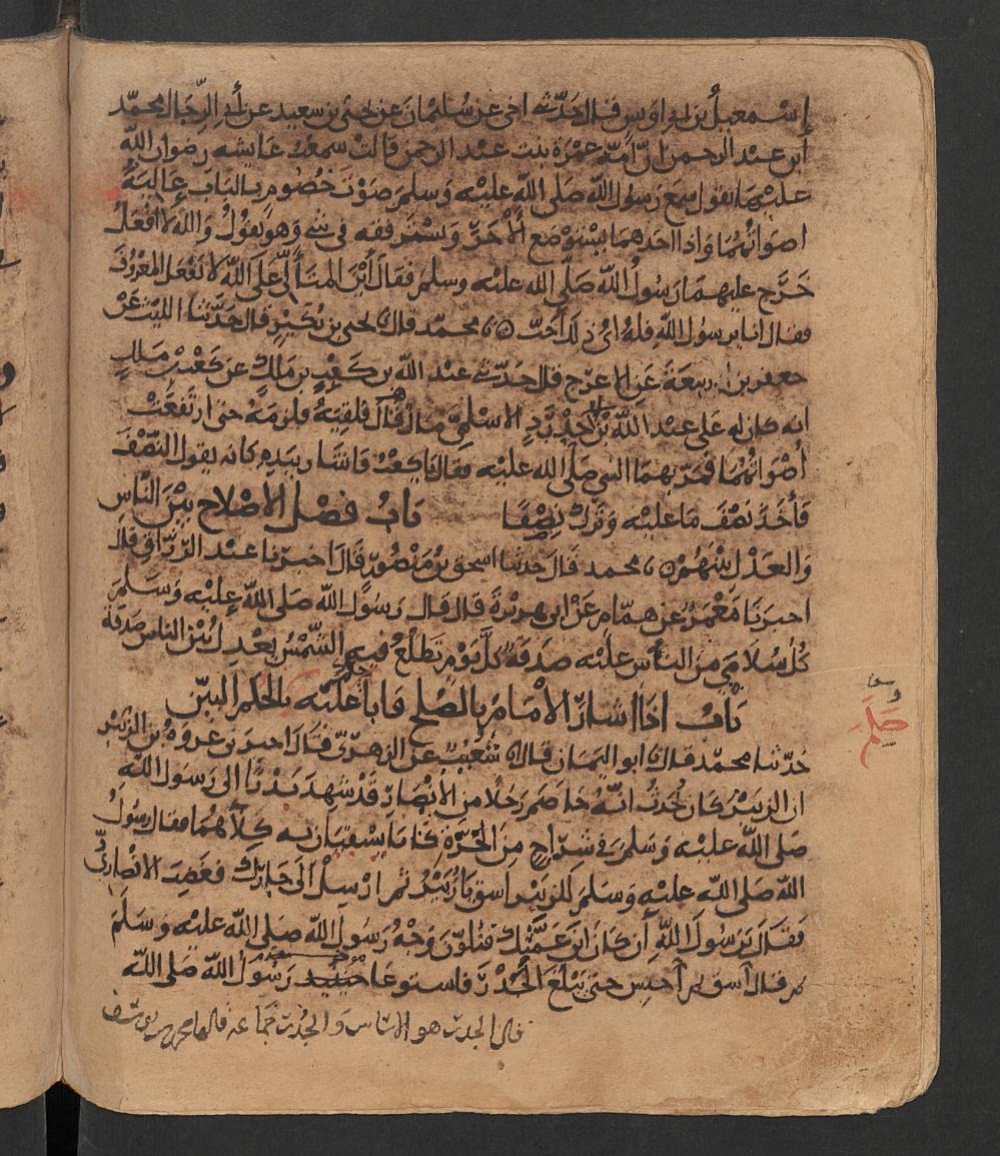 إسمعيل بن ابى اويس قال حدثنى اخى عن سليمان عن يحيى بن سعيد عن أبى الرجال محمد
ابن عبد الرحمن ان امه عمرة بنت عبد الرحمن قالت سمعت عايشه رضوان الله
عليها تقول سمع رسول الله صلى الله عليه وسلم صوت خصوم بالباب عالية
اصواتهما واذا احدهما يستوضع الآخر ويسترفقه فى شئ وهو يقول والله لا افعل
خرج عليهما رسول الله صلى الله عليه وسلم فقال اين المتألى على الله لا يفعل المعروف
فقال انا يرسول الله فله اى ذلك احب محمد قال يحيى بن بكير قال حدثنا الليث عن
جعفر بن ربيعة عن الاعرج قال حدثنى عبد الله بن كعب بن ملك عن كعب بن ملك
انه كان له على عبد الله بن ابى حدرد الاسلمى مال قال فلقيه فلزمه حتى ارتفعت
أصواتهما فمر بهما النبى صلى الله عليه فقال يا كعب فاشار بيده كانه يقول النصف
فأخذ نصف ما عليه وترك نصفا باب فضل الاصلاح بين الناس
والعدل بينهم محمد قال حدثنا اسحق بن منصور قال اخبرنا عبد الرزاق قال
اخبرنا معمر عن همام عن ابى هريرة قال قال رسول الله صلى الله عليه وسلم
كل سلامى من الناس عليه صدقة كل يوم تطلع فيه الشمس يعدل بين الناس صدقة
باب اذا اشار الامام بالصلح فابا عليه بالحكم البين
حدثنا محمد قال ابو اليمان قال شعيب عن الزهرى قال اخبرنى عروة بن الزبير
ان الزبير كان يحدث انه خاصم رجلا من الأنصار قد شهد بدرا الى رسول الله
صلى الله عليه وسلم فى شراج من الحرة كانا يسقيان به كلاهما فقال رسول
الله صلى الله عليه وسلم للزبير اسق يا زبير ثم ارسل الى جارك فغضب الانصارى
فقال يرسول الله أن كان ابن عمتك فتلون وجه رسول الله صلى الله عليه وسلم
ثم قال اسق ثم احبس حتى يبلغ الجدر فاستوعا حينيد رسول الله صلى الله
قال الجدر هو الاساس والجدر جماعه